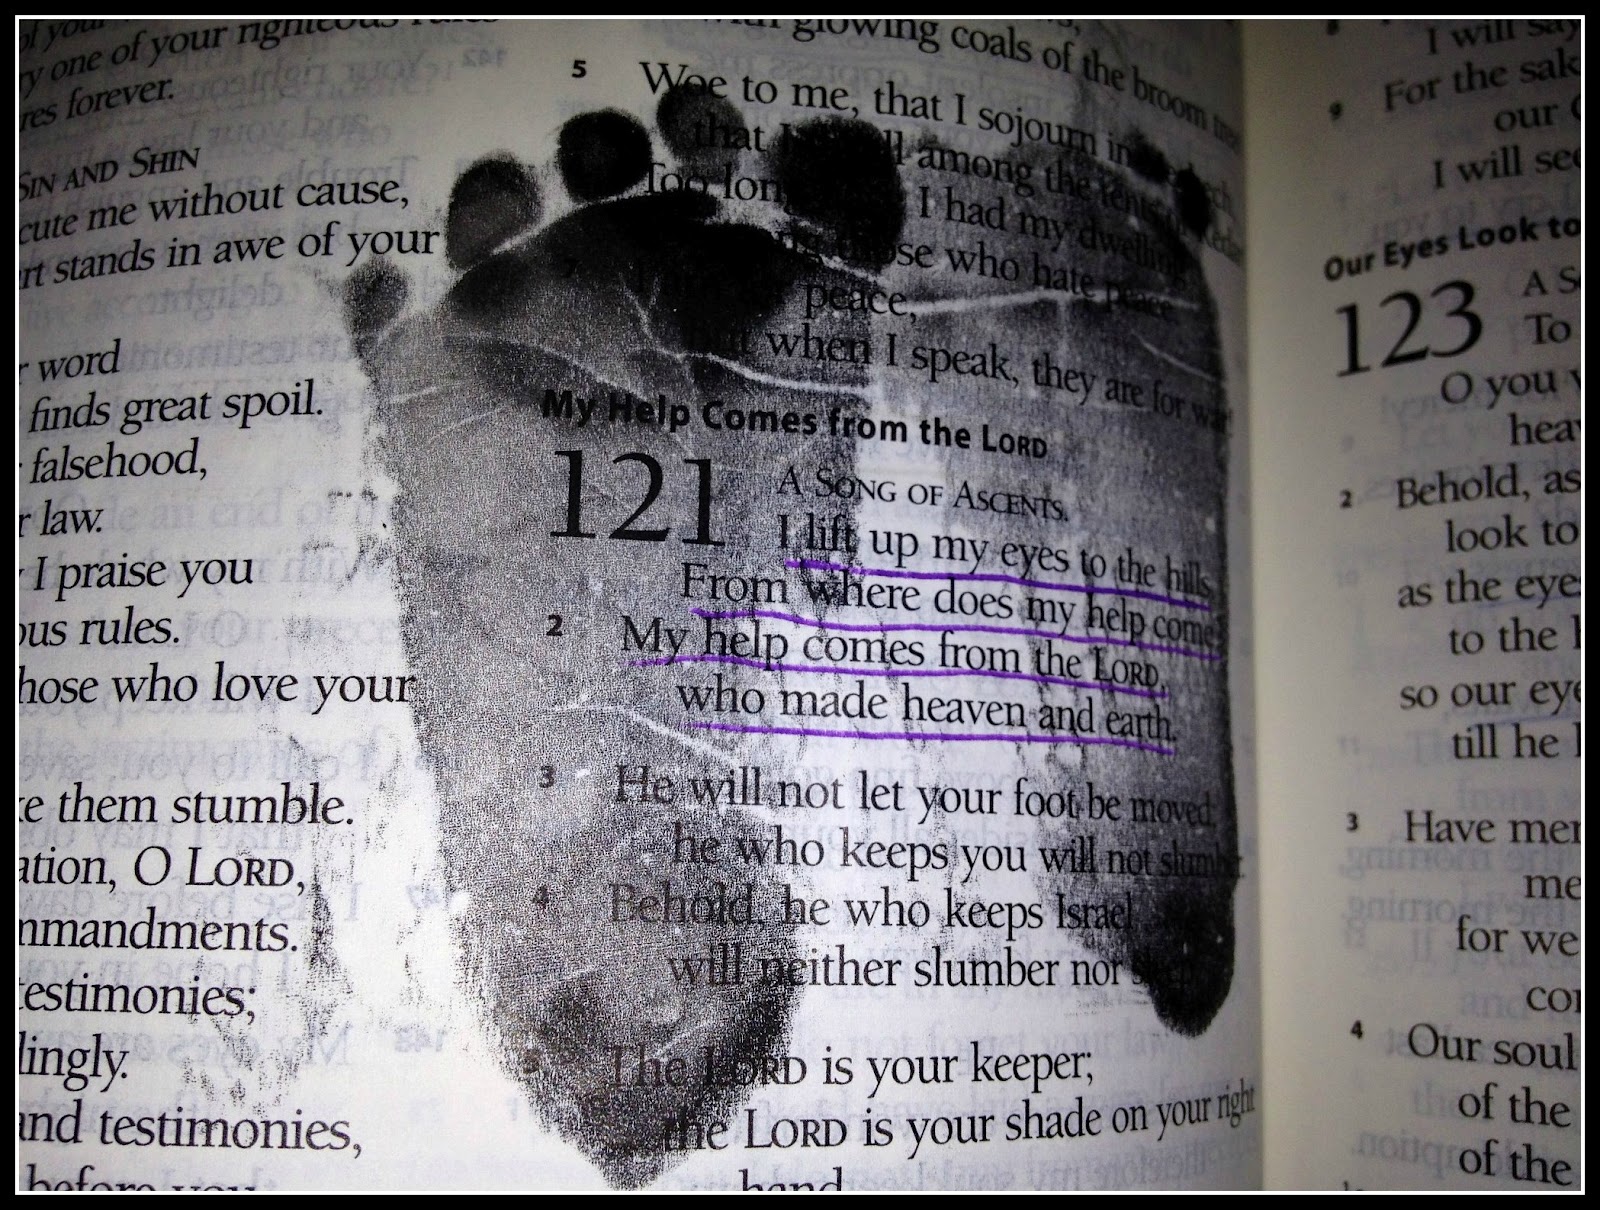 of your
ry one of your righteous rules
res forever.
SIN AND SHIN
cute me without cause,
rt stands in awe of your
r word
finds great spoil.
falsehood,
r law.
I praise you
ous rules.
hose who love your
ke them stumble.
ation, O LORD,
mmandments.
testimonies;
lingly.
and testimonies,
before you
with glowing coals of the broom tree
5 Woe to me, that I sojourn in
that I among the tents of
Too long I had my dwelling
those who hate peace
7 peace,
but when I speak, they are for war!
My Help Comes from the LORD
121 A SONG OF ASCENTS.
I lift up my eyes to the hills.
From where does my help come
2 My help comes from the LORD,
who made heaven and earth.
3 He will not let your foot be moved;
he who keeps you will not slumber.
4 Behold, he who keeps Israel
will neither slumber nor sleep.
5 The LORD is your keeper;
the LORD is your shade on your right
hand.
I will say
9 For the sak
our
I will see
Our Eyes Look to
123 A So
To
O you
heav
2 Behold, as
look to
as the eyes
to the
so our eye
till he
3 Have mer
me
for we
con
4 Our soul
of the
of the